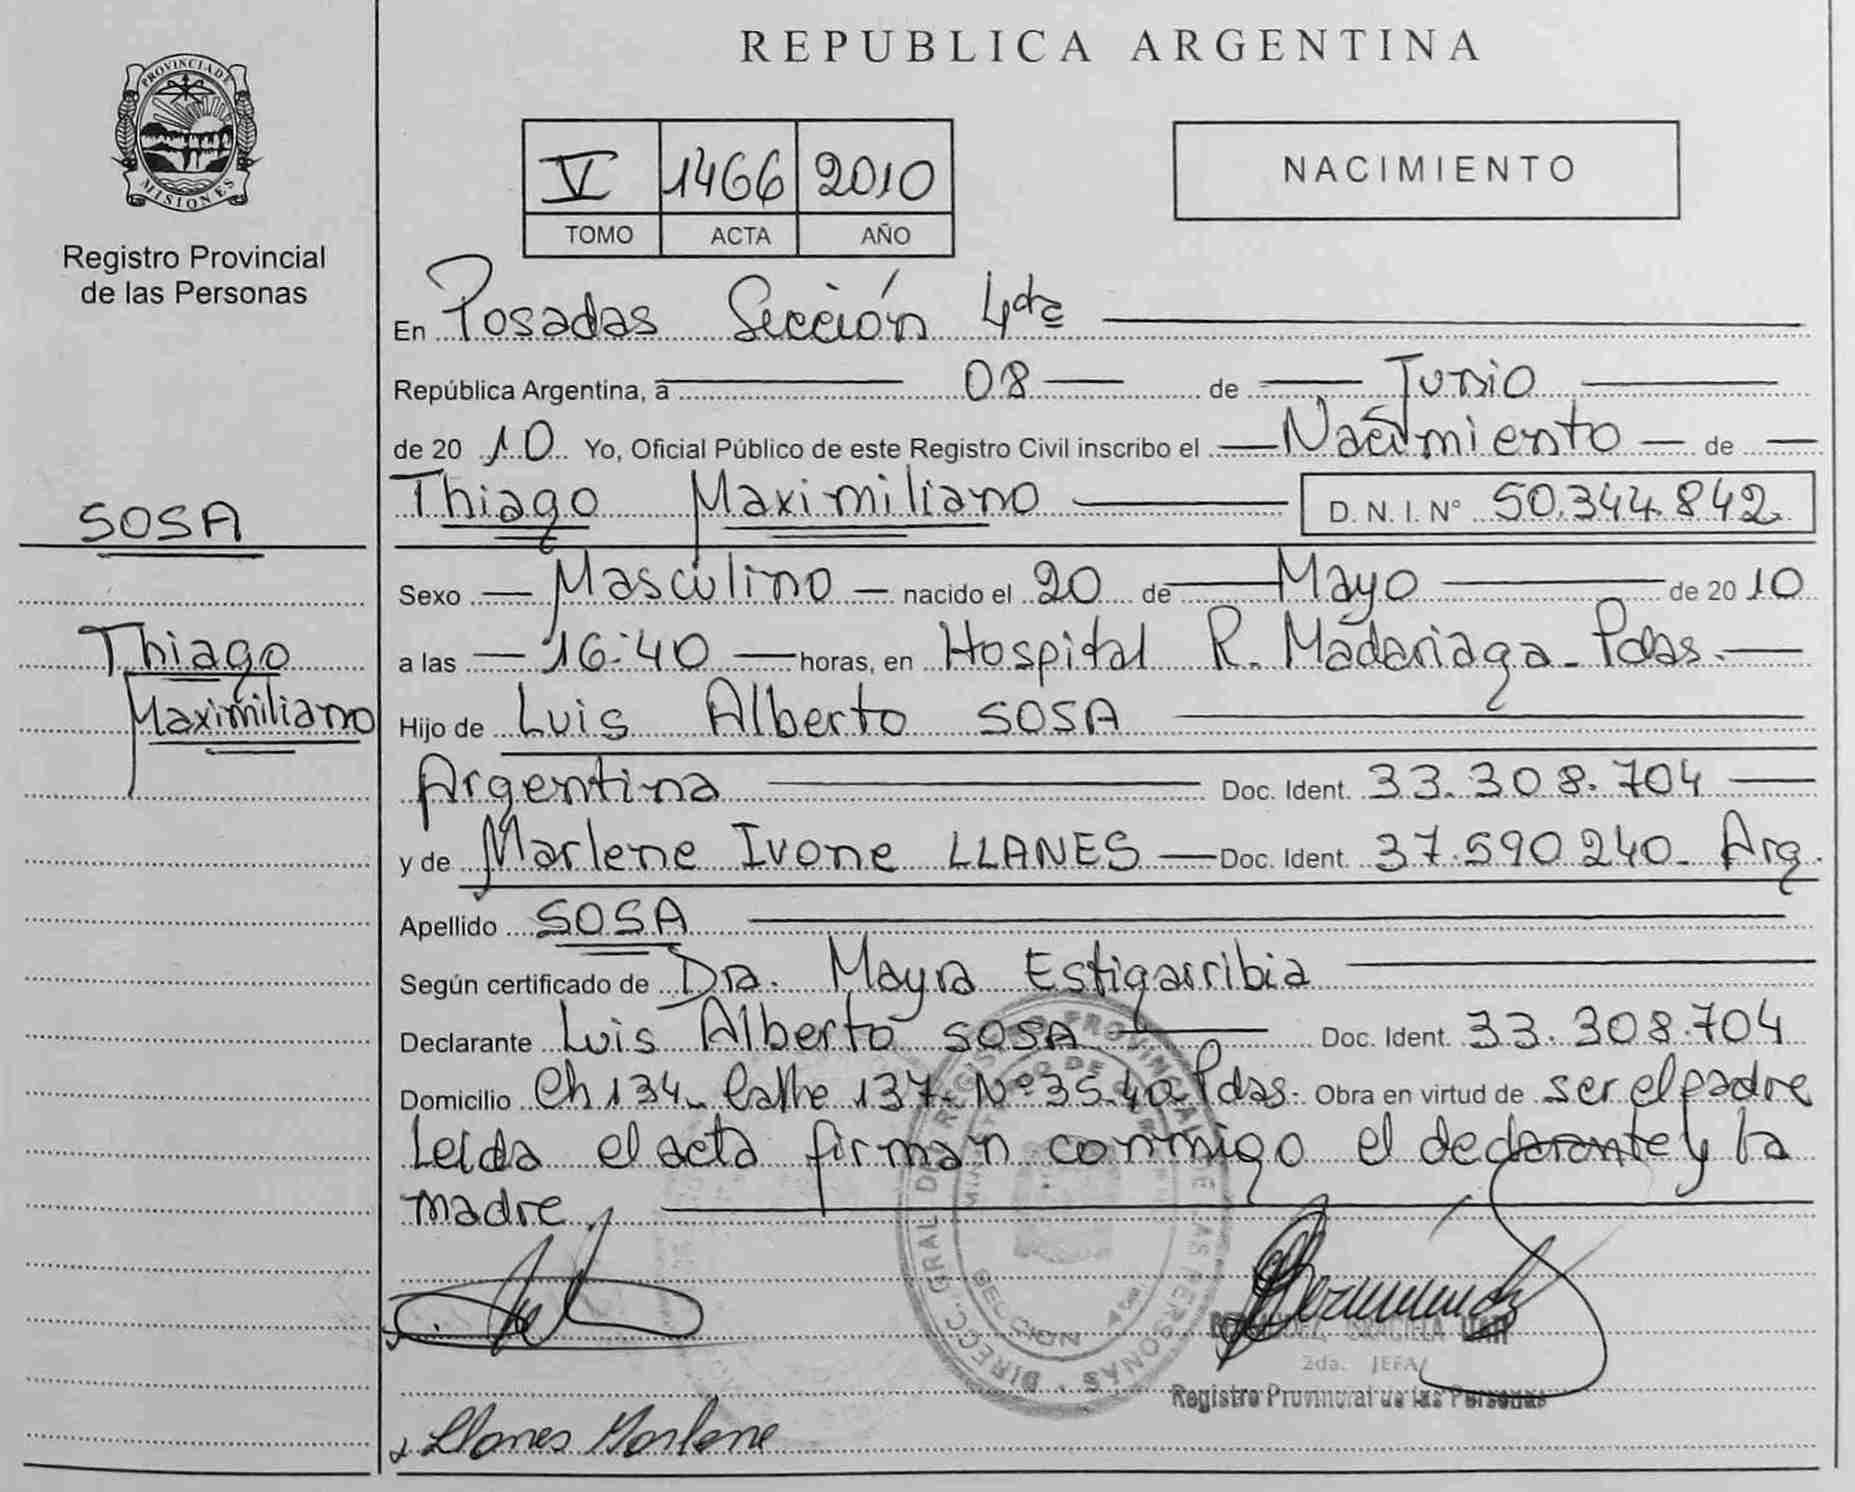 PROVINCIA DE
MISIONES
Registro Provincial
de las Personas
SOSA
Thiago
Maximiliano
REPUBLICA ARGENTINA
V 1466 2010
TOMO ACTA AÑO
NACIMIENTO
En Posadas Sección 4ta
República Argentina, a 08 de Junio
de 2010 Yo, Oficial Público de este Registro Civil inscribo el Nacimiento de
Thiago Maximiliano D. N. I. N° 50.344.842
Sexo Masculino nacido el 20 de Mayo de 2010
a las 16:40 horas, en Hospital R. Madariaga - Pdas.
Hijo de Luis Alberto SOSA
Argentina Doc. Ident. 33.308.704
y de Marlene Ivone LLANES Doc. Ident. 37.590.240 - Arg.
Apellido SOSA
Según certificado de Dra. Mayra Estigarribia
Declarante Luis Alberto SOSA Doc. Ident. 33.308.704
Domicilio Ch 134 - Calle 137 - N° 3540 - Pdas. Obra en virtud de ser el padre
Leída el acta firman conmigo el declarante y la
madre.
DIRECC. GRAL DEL REGISTRO PROVINCIAL DE LAS PERSONAS
SECCION 4
GRACIELA
2da. JEFA
Registro Provincial de las Personas
Llanes Marlene